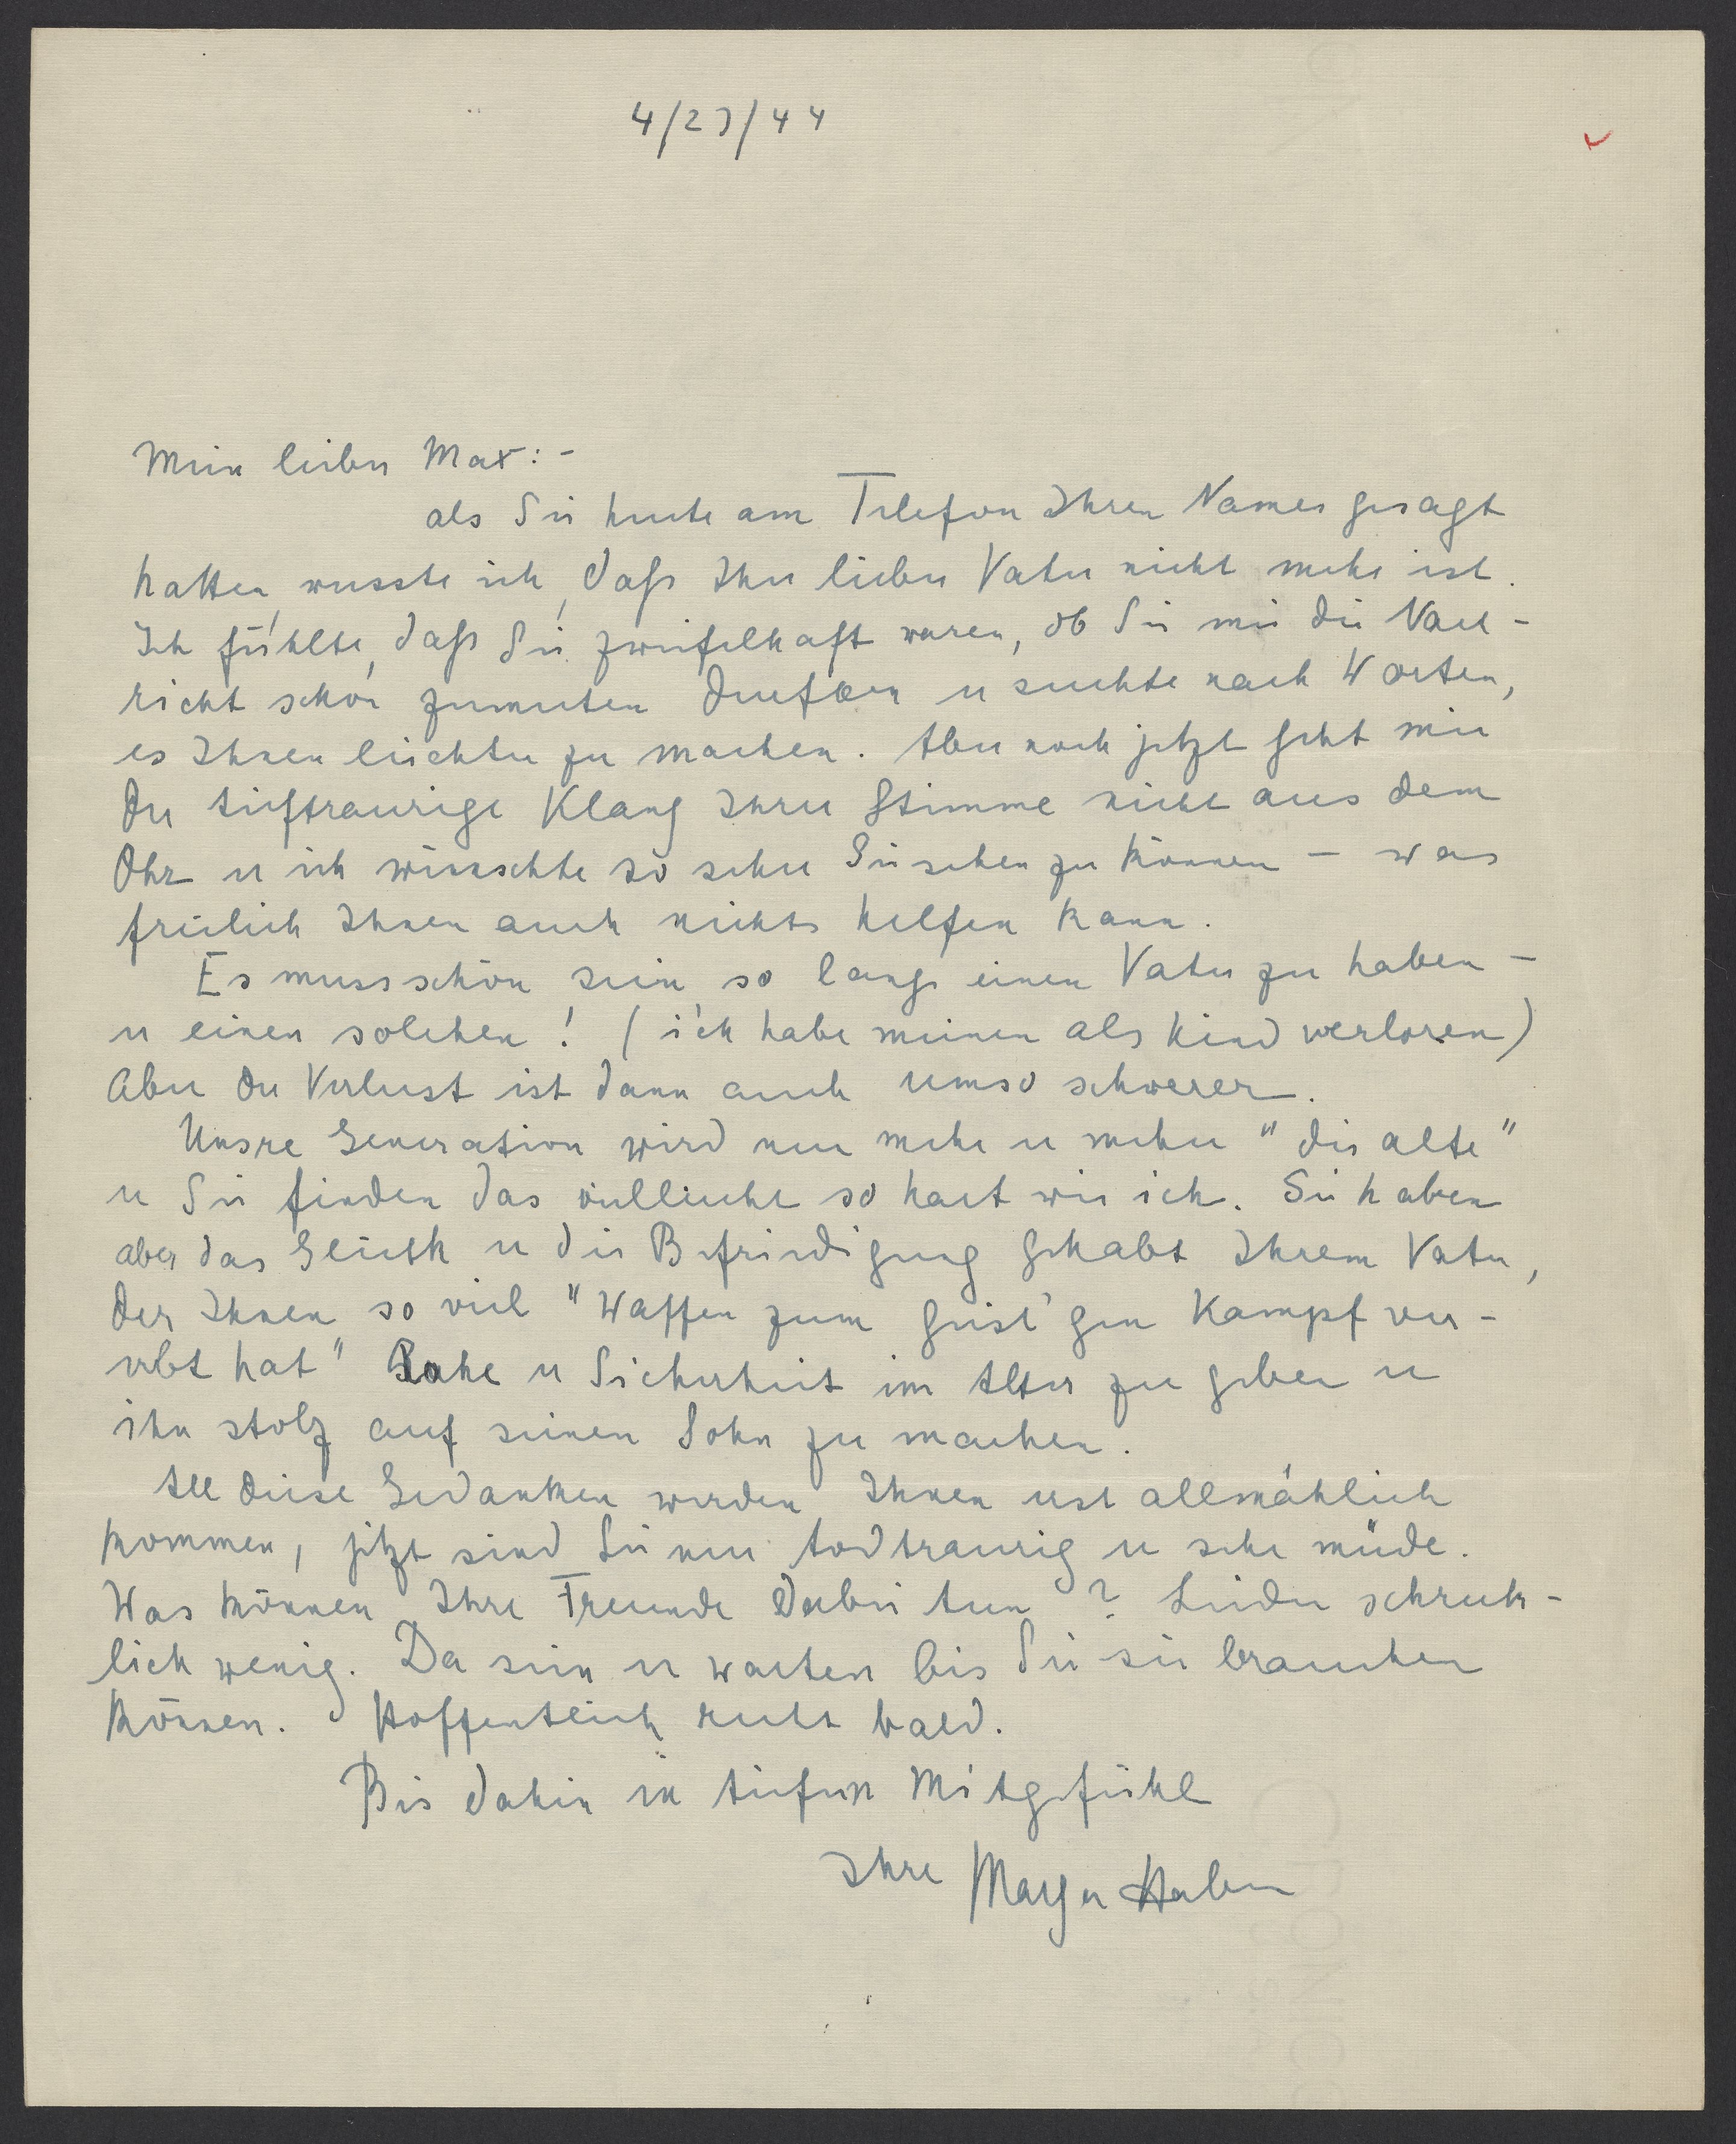 4/27/44
Mein lieber Max:-
als Sie heute am Telefon Ihren Namen gesagt
hatten, wusste ich, daß Ihr lieber Vater nicht mehr ist.
Ich fühlte, daß Sie zweifelhaft waren, ob Sie mir die Nach-
richt schon zumuten duerfen u suchte nach Worten,
es Ihnen leichter zu machen. Aber noch jetzt geht mir
der tieftraurige Klang Ihrer Stimme nicht aus dem
Ohr u ich wünschte so sehr Sie sehen zu können - was
freilich Ihnen auch nichts helfen kann.
Es muss schön sein, so lange einen Vater zu haben -
u einen solchen! (ich habe meinen als Kind verloren)
Aber der Verlust ist dann auch umso schwerer.
Unsre Generation wird nun mehr u mehr "die alte"
u Sie finden das vielleicht so hart wie ich. Sie haben
aber das Glück u die Befriedigung gehabt Ihrem Vater,
der Ihnen so viel "Waffen zum geist'gen Kampf ver-
erbt hat" Ruhe u Sicherheit im Alter zu geben u
ihn stolz auf seinen Sohn zu machen.
All diese Gedanken werden Ihnen erst allmählich
kommen, jetzt sind Sie nur todtraurig u sehr müde.
Was können Ihre Freunde dabei tun? Leider schreck-
lich wenig. Da sein u warten bis Sie sie brauchen
können. Hoffentlich recht bald.
Bis dahin in tiefem Mitgefühl
Ihre